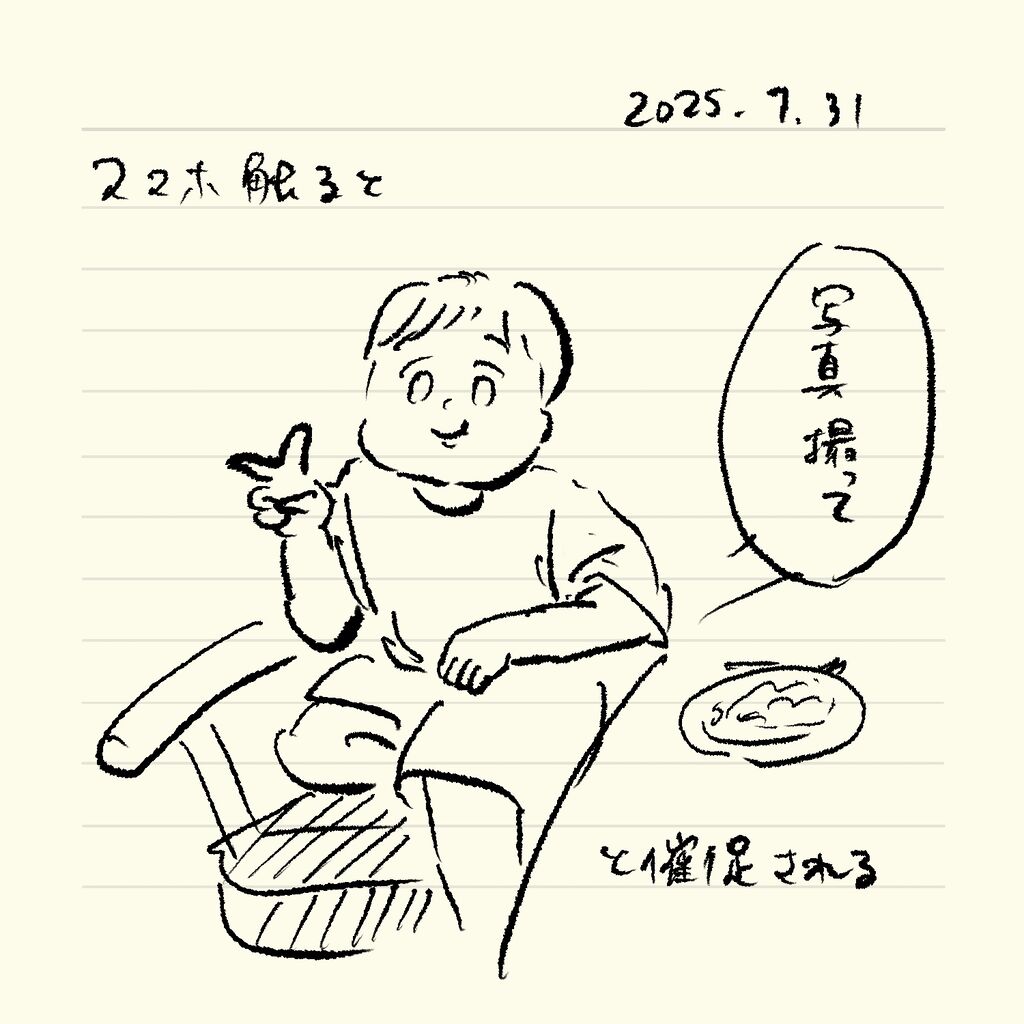 2025.7.31
スマホ触ると
写真撮って
と催促される